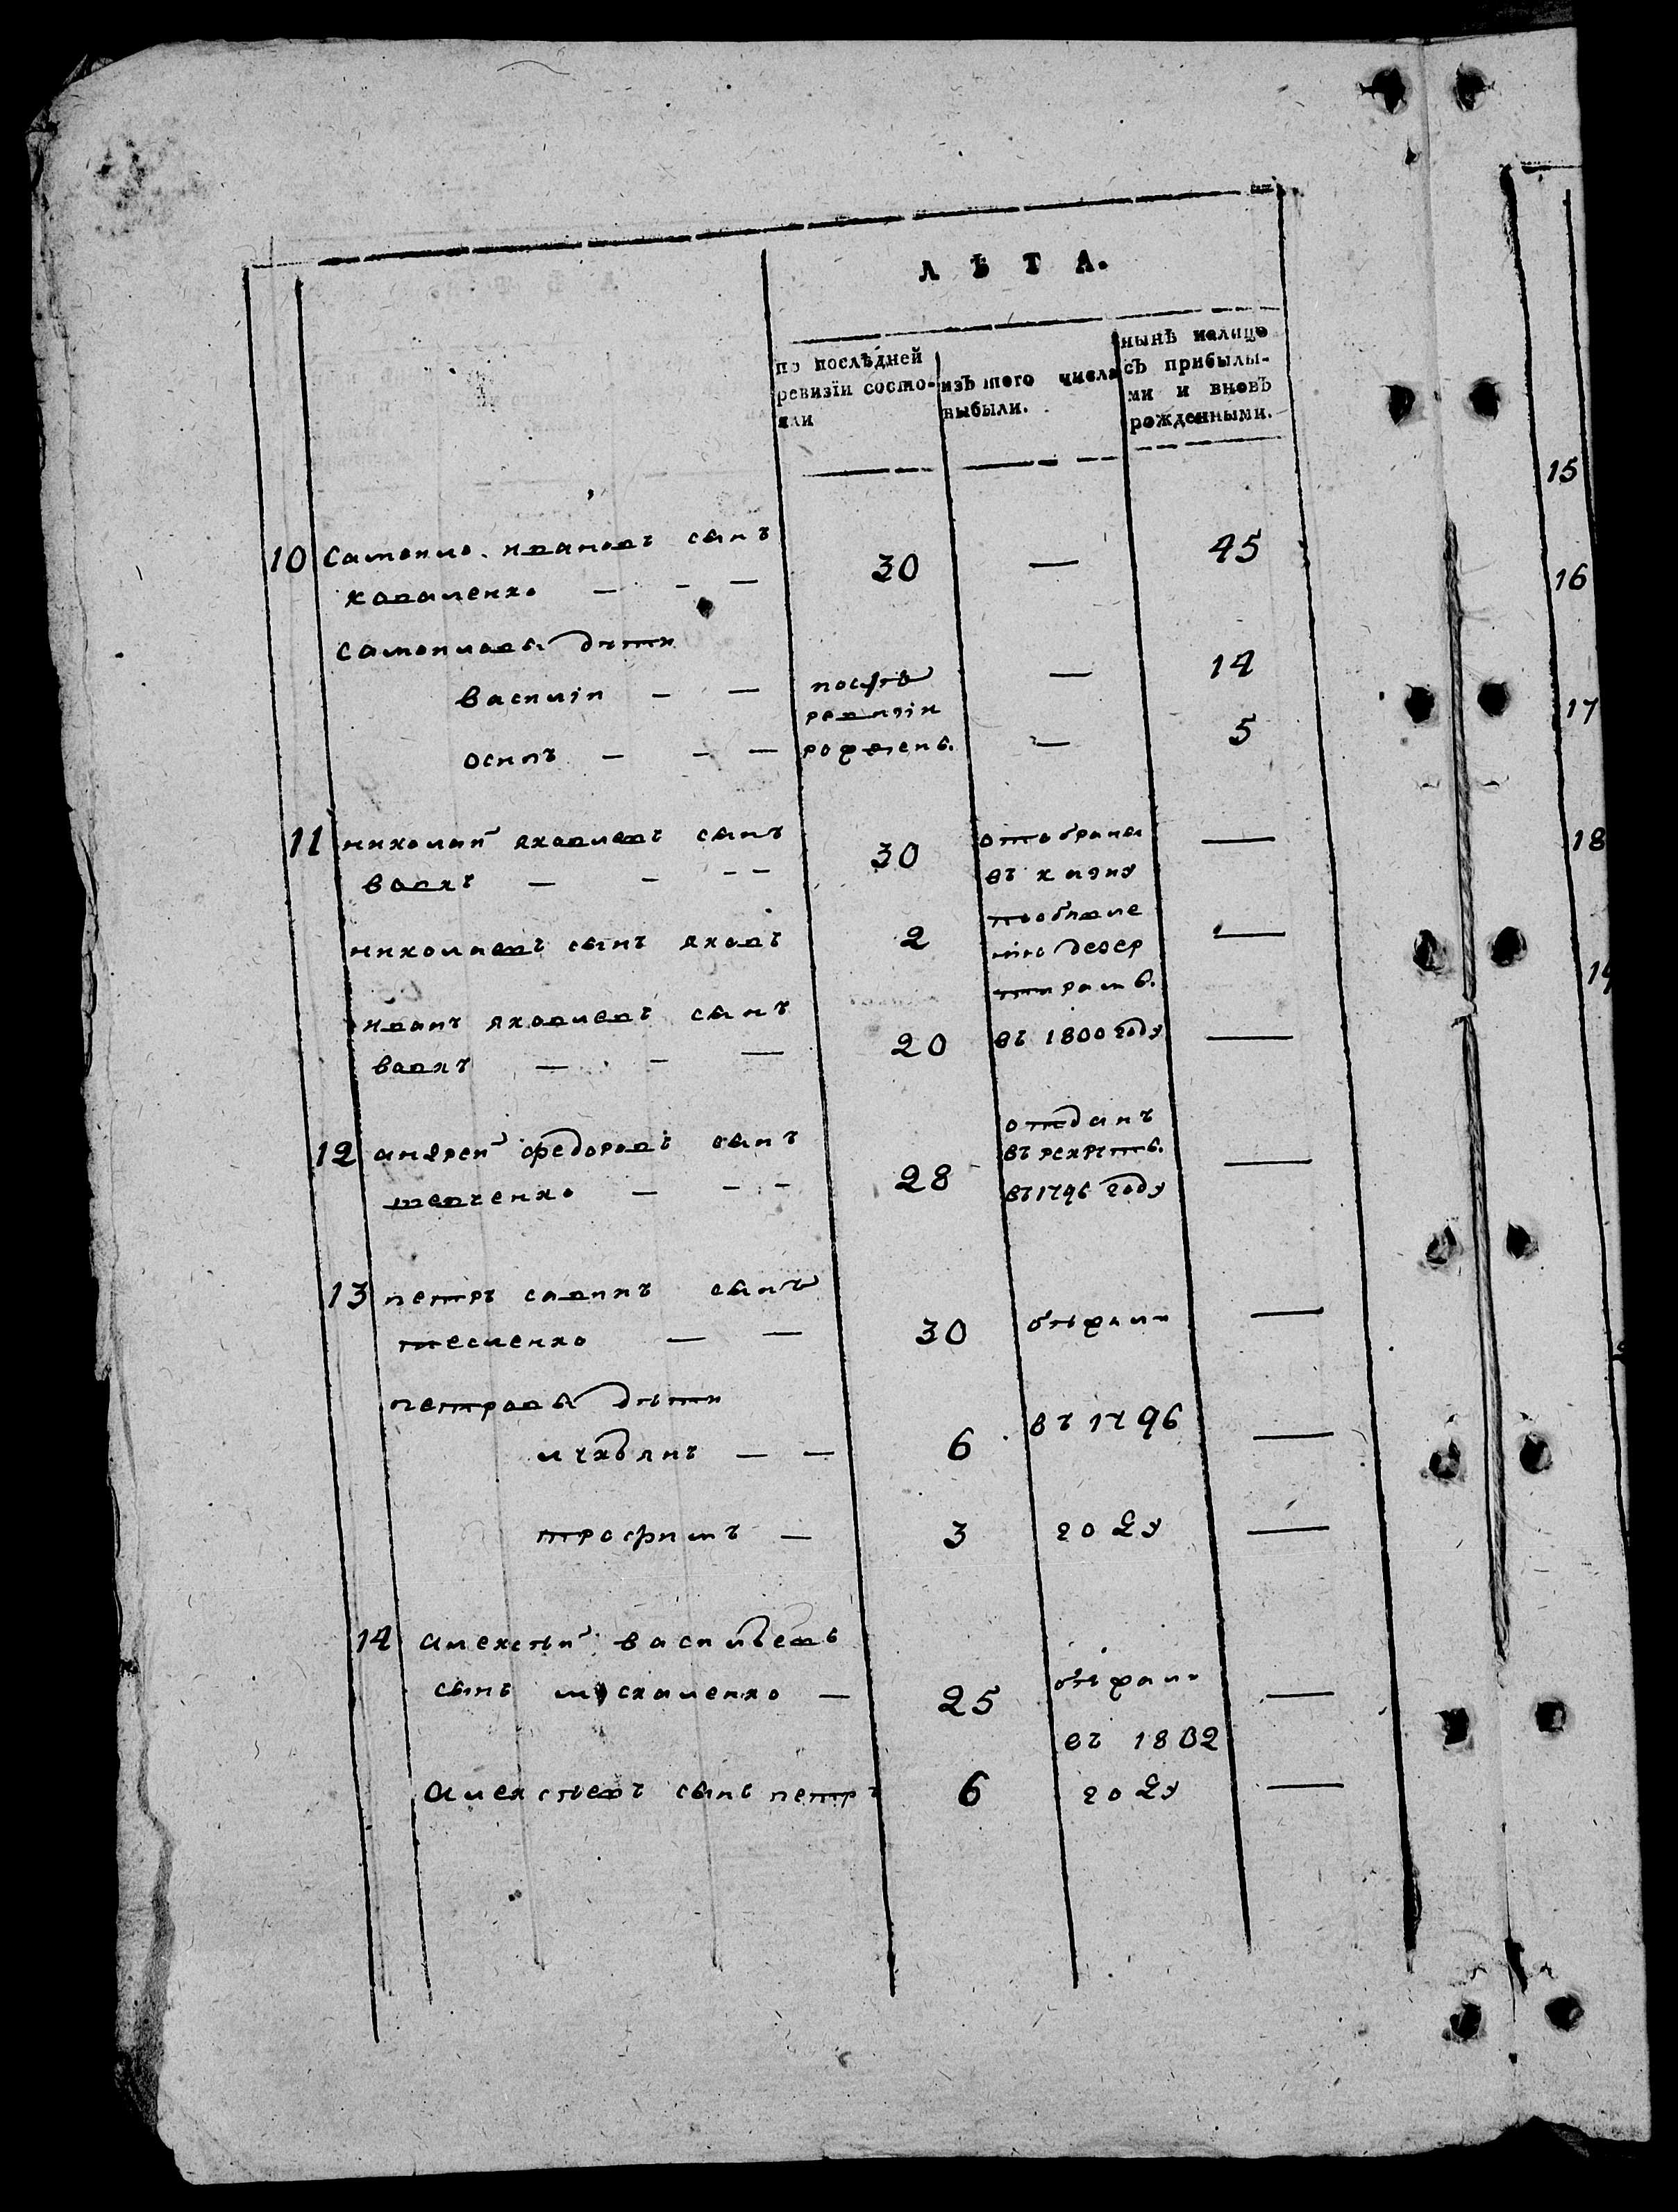 ЛѢТА.
по послѣдней ревизіи состояли
изъ того числа выбыли.
нынѣ налицо съ прибылыми и вновь рожденными.
10 Самоило. ивановъ сынъ
коваленко — - — 30 — 45
самоиловы дѣти
василiи — — послѣ — 14
ревизiи
осипъ — - — рожденъ. — 5
11 николай яковлевъ сынъ
вовкъ — - - - 30 отобраны въ казну —
николаевъ сынъ яковъ 2 —
дезер
иванъ яковлевъ сынъ
вовкъ — - — 20 въ 1800 году —
12 андреи федоровъ сынъ
шевченко — - - 28 отданъ въ рекруты. въ 1796 году —
13 петръ савинъ сынъ
тесленко — — 30 бѣжали —
петровы дѣти
— — 6 въ 1796 —
трофимъ — 3 году —
14 алексѣй васильевъ
сынъ москаленко — 25 бѣжали —
въ 1802
алексѣевъ сынъ петръ 6 году —
15
16
17
18